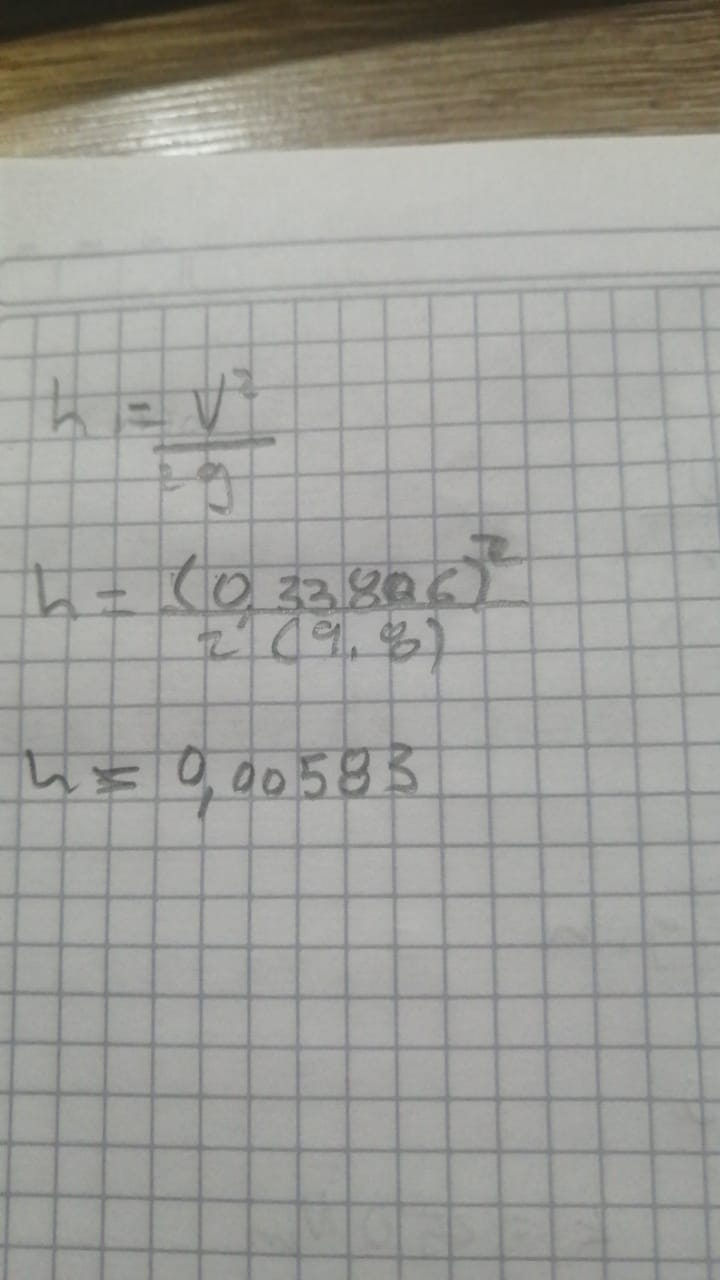 h = V²
2g
h = (0,33806)²
2 (9.8)
h = 0,00583